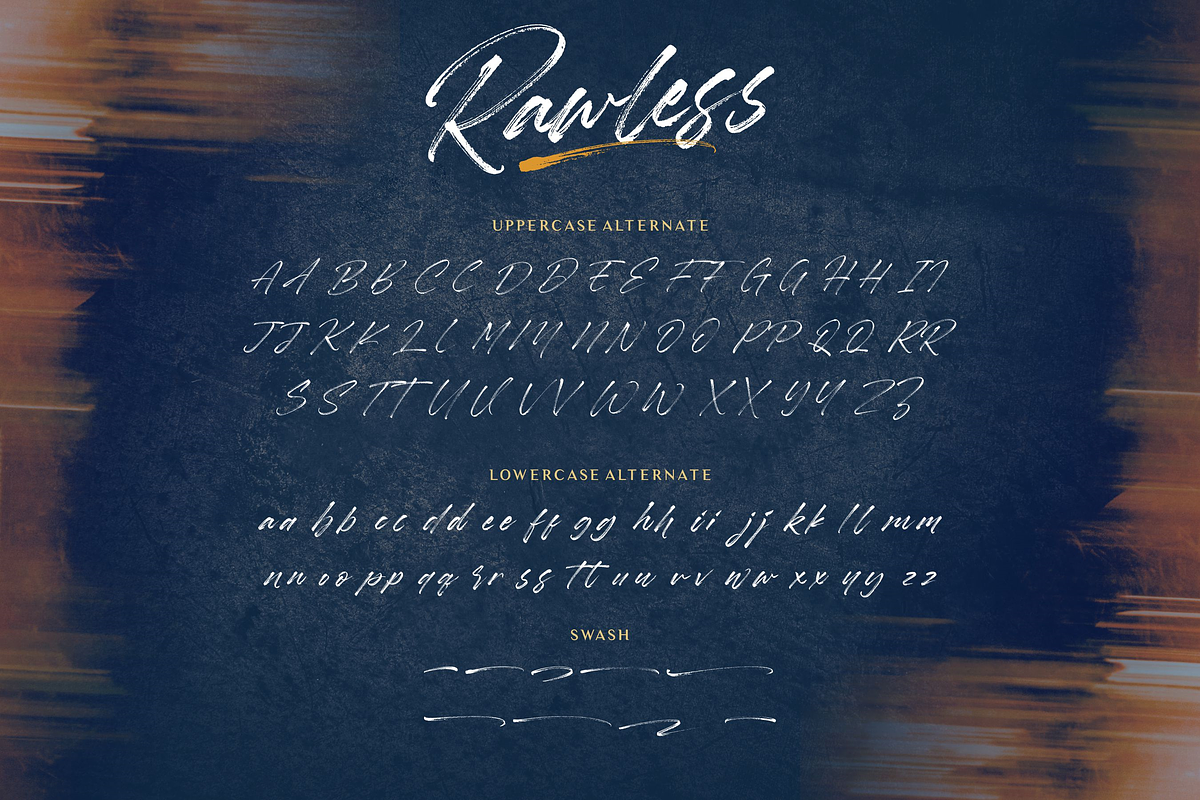 Rawless
UPPERCASE ALTERNATE
AA BB CC DD EE FF GG HH II
JJ KK LL MM NN OO PP QQ RR
SS TT UU VV WW XX YY ZZ
LOWERCASE ALTERNATE
aa bb cc dd ee ff gg hh ii jj kk ll mm
nn oo pp qq rr ss tt uu vv ww xx yy zz
SWASH